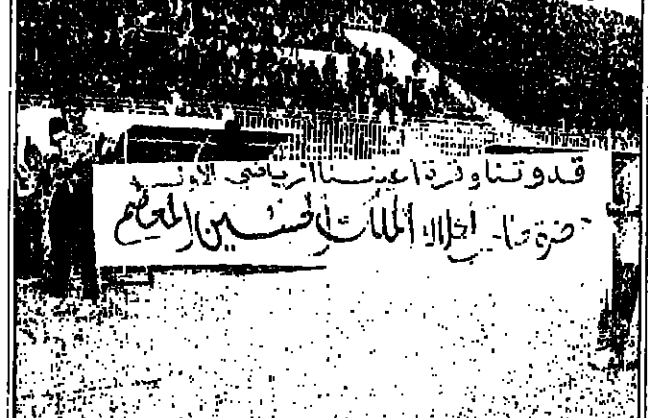 قدوتنا وقرة أعيننا الرياضي الأول
حضرة صاحب الجلالة الملك الحسين المعظم